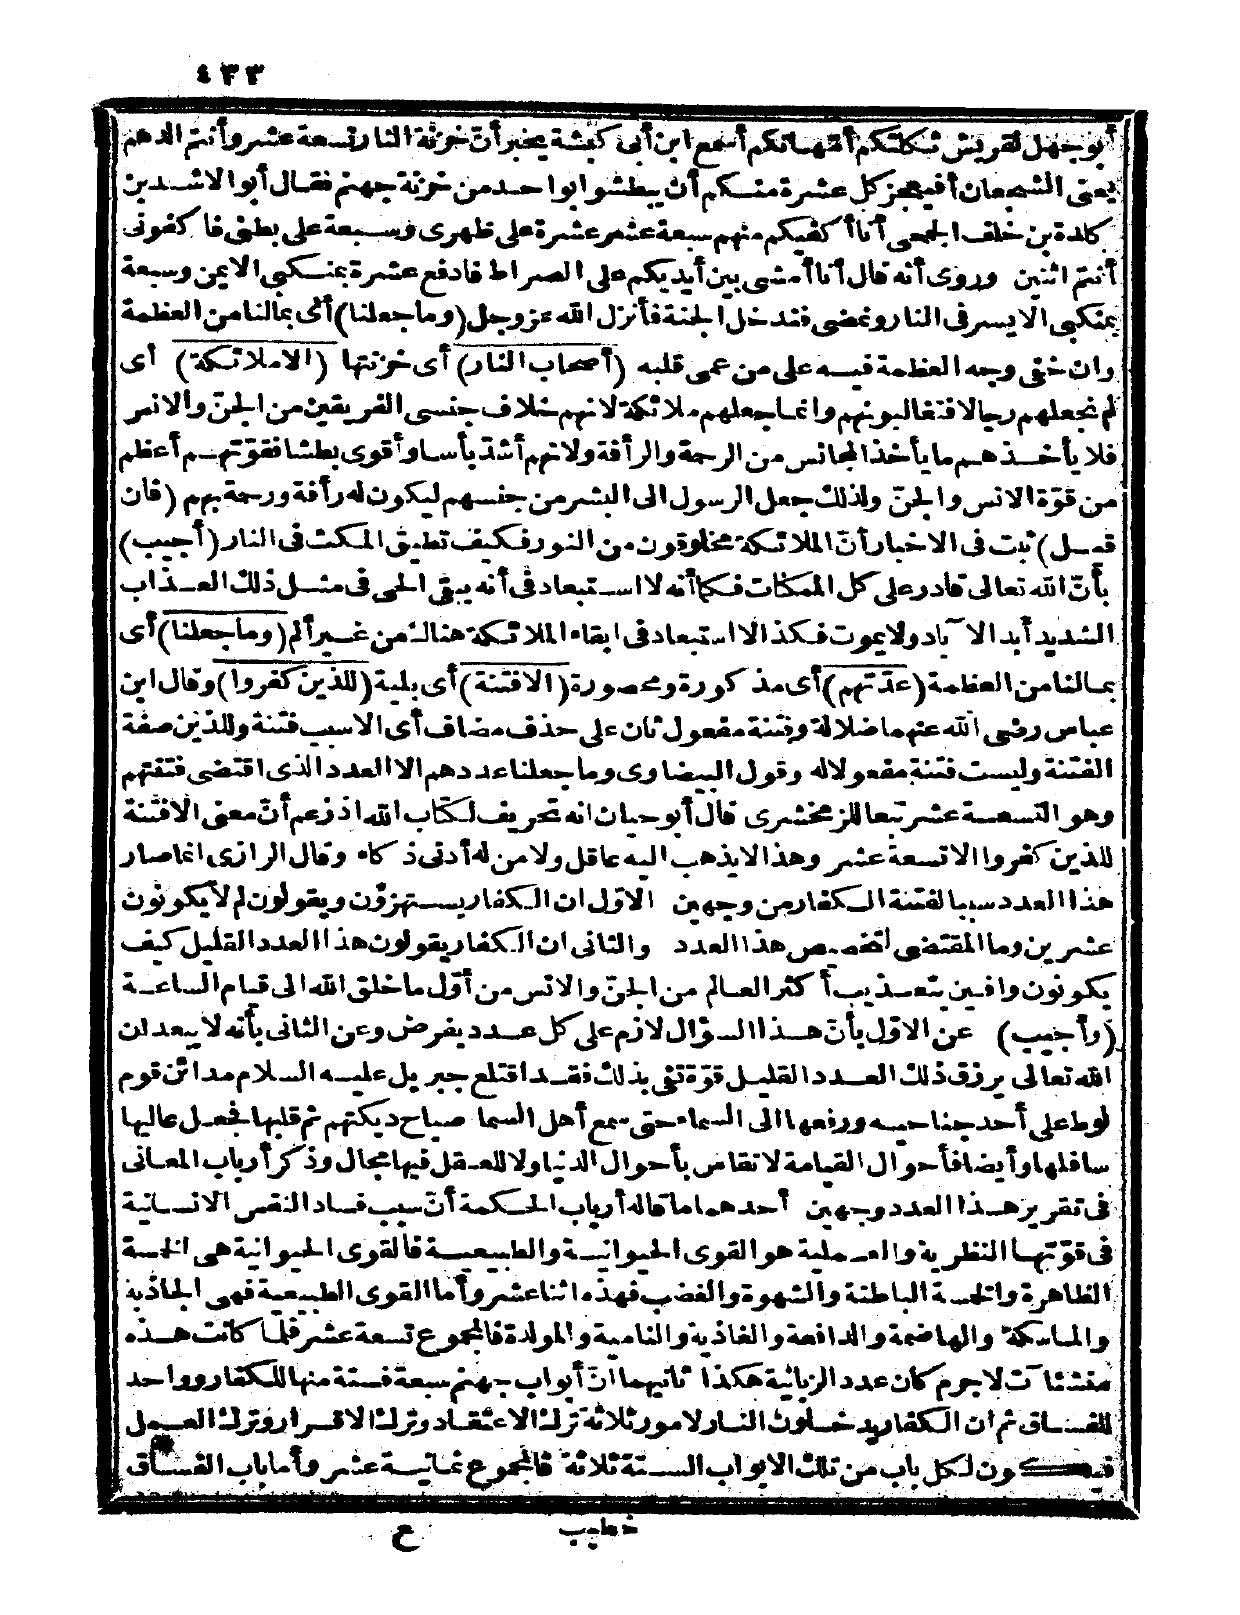 ٤٣٣
أبو جهل لقريش ثكلتكم أمّهاتكم أسمع ابن أبى كبشة يخبر أنّ خزنة النار تسعة عشر وأنتم الدهم
يعنى الشجعان أفيعجز كل عشرة منكم أن يبطشوا بواحد من خزنة جهنم فقال أبو الاشد بن
كلدة بن خلف الجمعى أنا أكفيكم منهم سبعة عشر عشرة على ظهرى وسبعة على بطنى فاكفونى
أنتم اثنين وروى أنه قال أنا أمشى بين أيديكم على الصراط فادفع عشرة بمنكبى الايمن وسبعة
بمنكبى الايسر فى النار ونمضى فندخل الجنة فأنزل الله عز وجل (وما جعلنا) أى بمالنا من العظمة
وان خفى وجه العظمة فيه على من عمى قلبه (أصحاب النار) أى خزنتها (الاملائكة) أى
لم نجعلهم رجالا فتغالبونهم وانما جعلهم ملائكة لانهم خلاف جنسى الفريقين من الجنّ والانس
فلا يأخذهم ما يأخذ المجانس من الرحمة والرأفة ولانهم أشدّ بأسا وأقوى بطشا فقوّتهم أعظم
من قوّة الانس والجنّ ولذلك جعل الرسول الى البشر من جنسهم ليكون له رأفة ورحمة بهم (فان
قيل) ثبت فى الاخبار أنّ الملائكة مخلوقون من النور فكيف تطيق المكث فى النار (أجيب)
بأنّ الله تعالى قادر على كل الممكنات فكما أنه لا استبعاد فى أنه يبقى الحى فى مثل ذلك العذاب
الشديد أبد الا ٓباد ولا يموت فكذا لا استبعاد فى ابقاء الملائكة هناك من غير ألم (وما جعلنا) أى
بمالنا من العظمة (عدّتهم) أى مذكورة ومحصورة (الافتنة) أى بلية (للذين كفروا) وقال ابن
عباس رضى الله عنهما ضلالة وفتنة مفعول ثان على حذف مضاف أى الاسبب فتنة وللذين صفة
الفتنة وليست فتنة مفعولا له وقول البيضاوى وما جعلنا عددهم الا العدد الذى اقتضى فتنتهم
وهو التسعة عشر تبعا للزمخشرى قال أبو حيان انه تحريف لكتاب الله اذ زعم أنّ معنى الافتنة
للذين كفروا الاتسعة عشر وهذا لا يذهب اليه عاقل ولا من له أدنى ذكاء وقال الرازى انما صار
هذا العدد سببا لفتنة الكفار من وجهين الاوّل ان الكفار يستهزؤن ويقولون لم لا يكونون
عشرين وما المقتضى لتخصيص هذا العدد والثانى ان الكفار يقولون هذا العدد القليل كيف
يكونون وافين بتعذيب أكثر العالم من الجنّ والانس من أوّل ما خلق الله الى قيام الساعة
(وأجيب) عن الاوّل بأنّ هذا السؤال لازم على كل عدد يفرض وعن الثانى بأنه لا يبعد ان
الله تعالى يرزق ذلك العدد القليل قوّة تفى بذلك فقد اقتلع جبريل عليه السلام مدائن قوم
لوط على أحد جناحيه ورفعها الى السماء حتى سمع أهل السما صياح ديكتهم ثم قلبها فجعل عاليها
سافلها وأيضا فأحوال القيامة لا تقاس بأحوال الدنيا ولا للعقل فيها مجال وذكر أرباب المعانى
فى تقرير هذا العدد وجهين أحدهما ما قاله أرباب الحكمة أنّ سبب فساد النفس الانسانية
فى قوّتها النظرية والعملية هو القوى الحيوانية والطبيعية فالقوى الحيوانية هى الخمسة
الظاهرة والخمسة الباطنة والشهوة والغضب فهذه اثنا عشر وأما القوى الطبيعية فهى الجاذبة
والماسكة والهاضمة والدافعة والغاذية والنامية والمولدة فالمجموع تسعة عشر فلما كانت هذه
منشئا ٓت لا جرم كان عدد الزبانية هكذا ثانيهما انّ أبواب جهنم سبعة فستة منها للكفار وواحد
للفساق ثم ان الكفار يدخلون النار لامور ثلاثة ترك الاعتقاد وترك الاقرار وترك العمل
فيكون لكل باب من تلك الابواب الستة ثلاثة فالمجموع ثمانية عشر وأما باب الفساق
خطيب ع